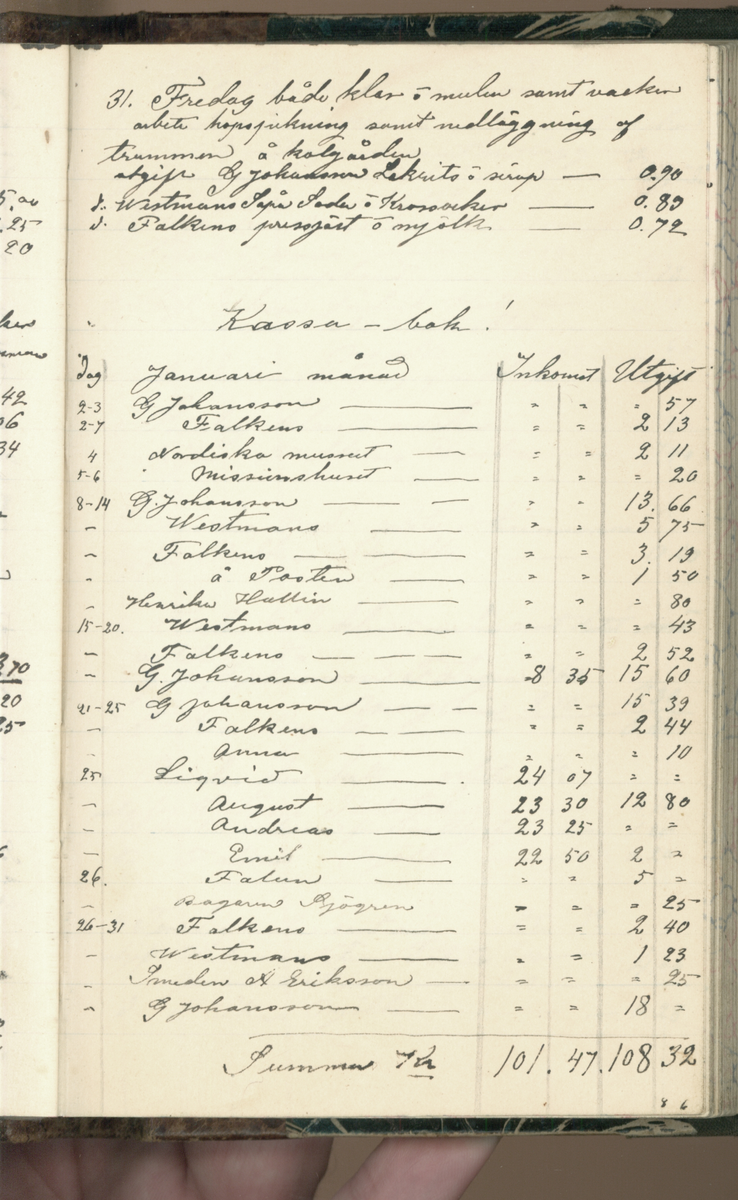 5.00
.25
20
42
06
34
3.70
20
25
31. Fredag både klar ō mulen samt vacker
arbete samt nedläggning af
trummen å kolgården
utgift G Johansson Lakrits ō sirap — 0.90
d. Westmans Såpa Soda ō — 0.89
d. Falkens pressjäst ō mjölk — 0.72
Kassa – bok !
Dag Januari månad Inkomst Utgift
2-3 G Johansson — " " " 57
2-7 Falkens — " " 2 13
4 Nordiska museet — " " 2 11
5-6 Missionshuset — " " " 20
8-14 G. Johansson — " " 13. 66
" Westmans — " " 5 75
" Falkens — " " 3. 19
" å Posten — " " 1 50
" Henrika Hallin — " " " 80
15-20. Westmans — " " " 43
" Falkens — " " 2 52
" G. Johansson — 8 35 15 60
21-25 G Johansson — " " 15 39
" Falkens — " " 2 44
" Anna — " " " 10
25 Liqvid — 24 07 " "
" August — 23 30 12 80
" Andreas — 23 25 " "
" Emil — 22 50 2 "
26. Falun — " " 5 "
" Bagaren Sjögren " " " 25
26-31 Falkens — " " 2 40
" Westmans — " " 1 23
" Smeden A Eriksson — " " " 25
" G Johansson — " " 18 "
Summa Kr 101. 47. 108 32
8 6